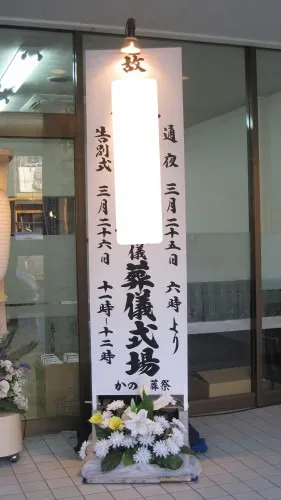 通夜 三月二十五日 六時より
故
儀 葬儀式場
告別式 三月二十六日 十一時〜十二時
かの 葬祭